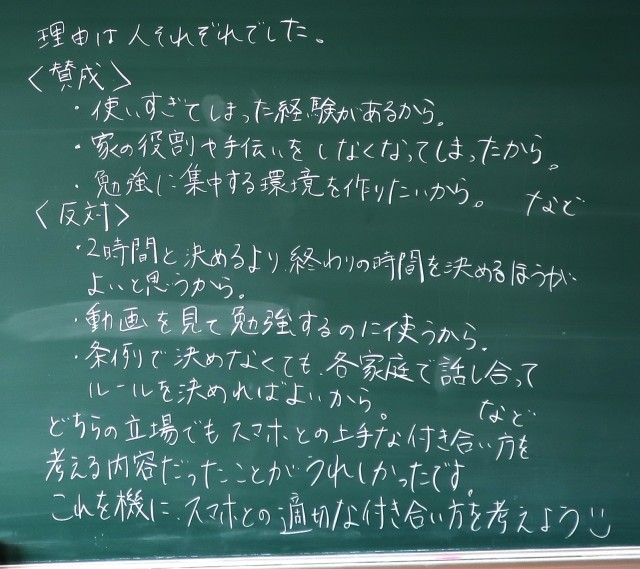 理由は人それぞれでした。
〈賛成〉
・使いすぎてしまった経験があるから。
・家の役割や手伝いをしなくなってしまったから。
・勉強に集中する環境を作りたいから。 など
〈反対〉
・2時間と決めるより、終わりの時間を決めるほうが
よいと思うから。
・動画を見て勉強するのに使うから。
・条例で決めなくても、各家庭で話し合って
ルールを決めればよいから。 など
どちらの立場でもスマホとの上手な付き合い方を
考える内容だったことがうれしかったです。
これを機に、スマホとの適切な付き合い方を考えよう